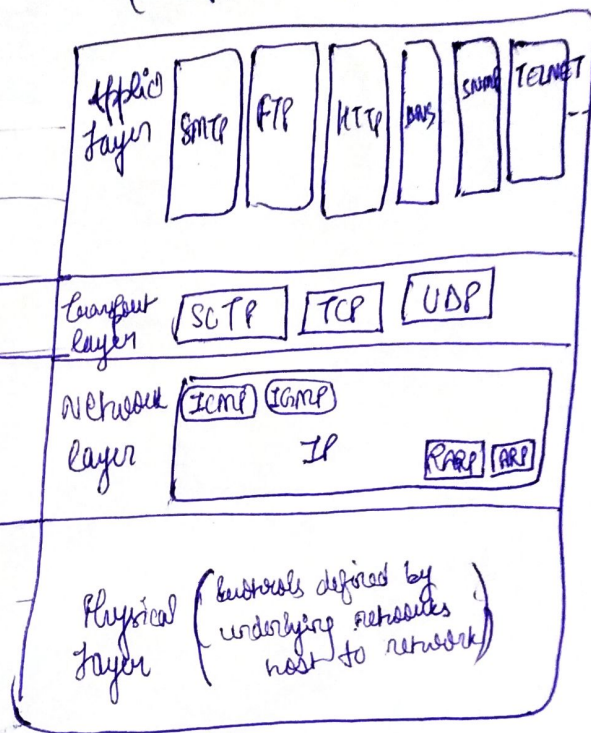 Applic
Layer
SMTP FTP HTTP DNS SNMP TELNET
transport
layer
SCTP TCP UDP
Network
layer
ICMP IGMP
IP
RARP ARP
Physical
Layer
(protocols defined by
underlying networks
host to network)